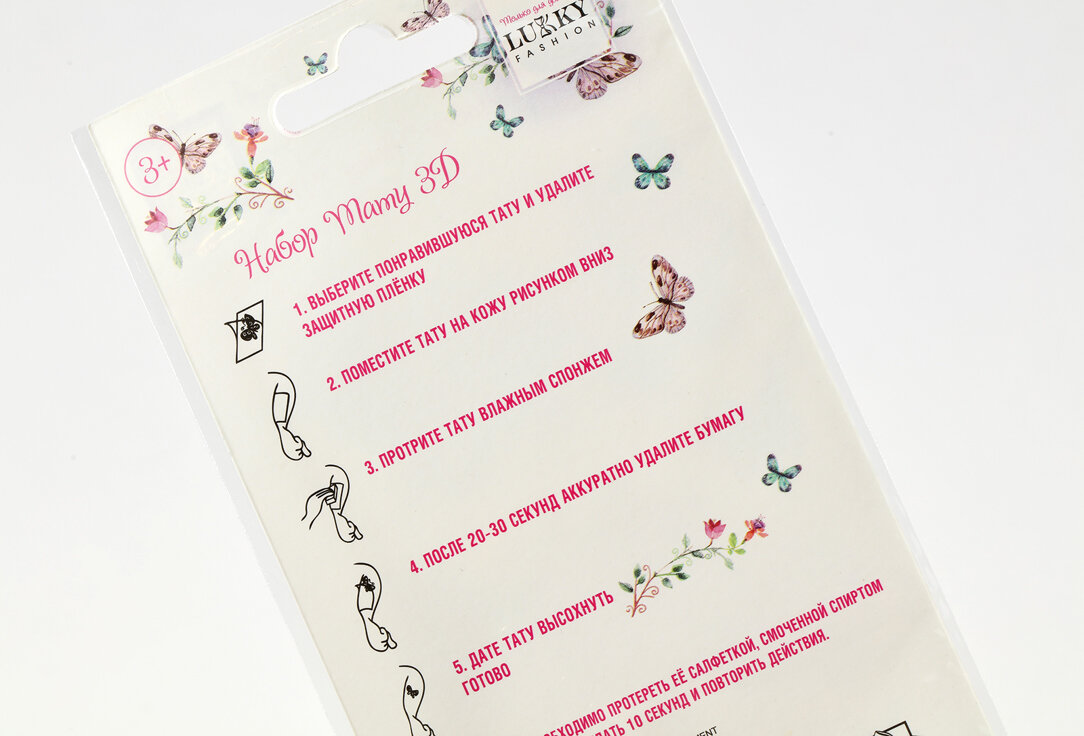 Только для
LUKKY
FASHION
3+
Набор Тату 3D
1. ВЫБЕРИТЕ ПОНРАВИВШУЮСЯ ТАТУ И УДАЛИТЕ
ЗАЩИТНУЮ ПЛЁНКУ
2. ПОМЕСТИТЕ ТАТУ НА КОЖУ РИСУНКОМ ВНИЗ
3. ПРОТРИТЕ ТАТУ ВЛАЖНЫМ СПОНЖЕМ
4. ПОСЛЕ 20-30 СЕКУНД АККУРАТНО УДАЛИТЕ БУМАГУ
5. ДАТЕ ТАТУ ВЫСОХНУТЬ
ГОТОВО
ПРОТЕРЕТЬ ЕЁ САЛФЕТКОЙ, СМОЧЕННОЙ СПИРТОМ
10 СЕКУНД И ПОВТОРИТЬ ДЕЙСТВИЯ.